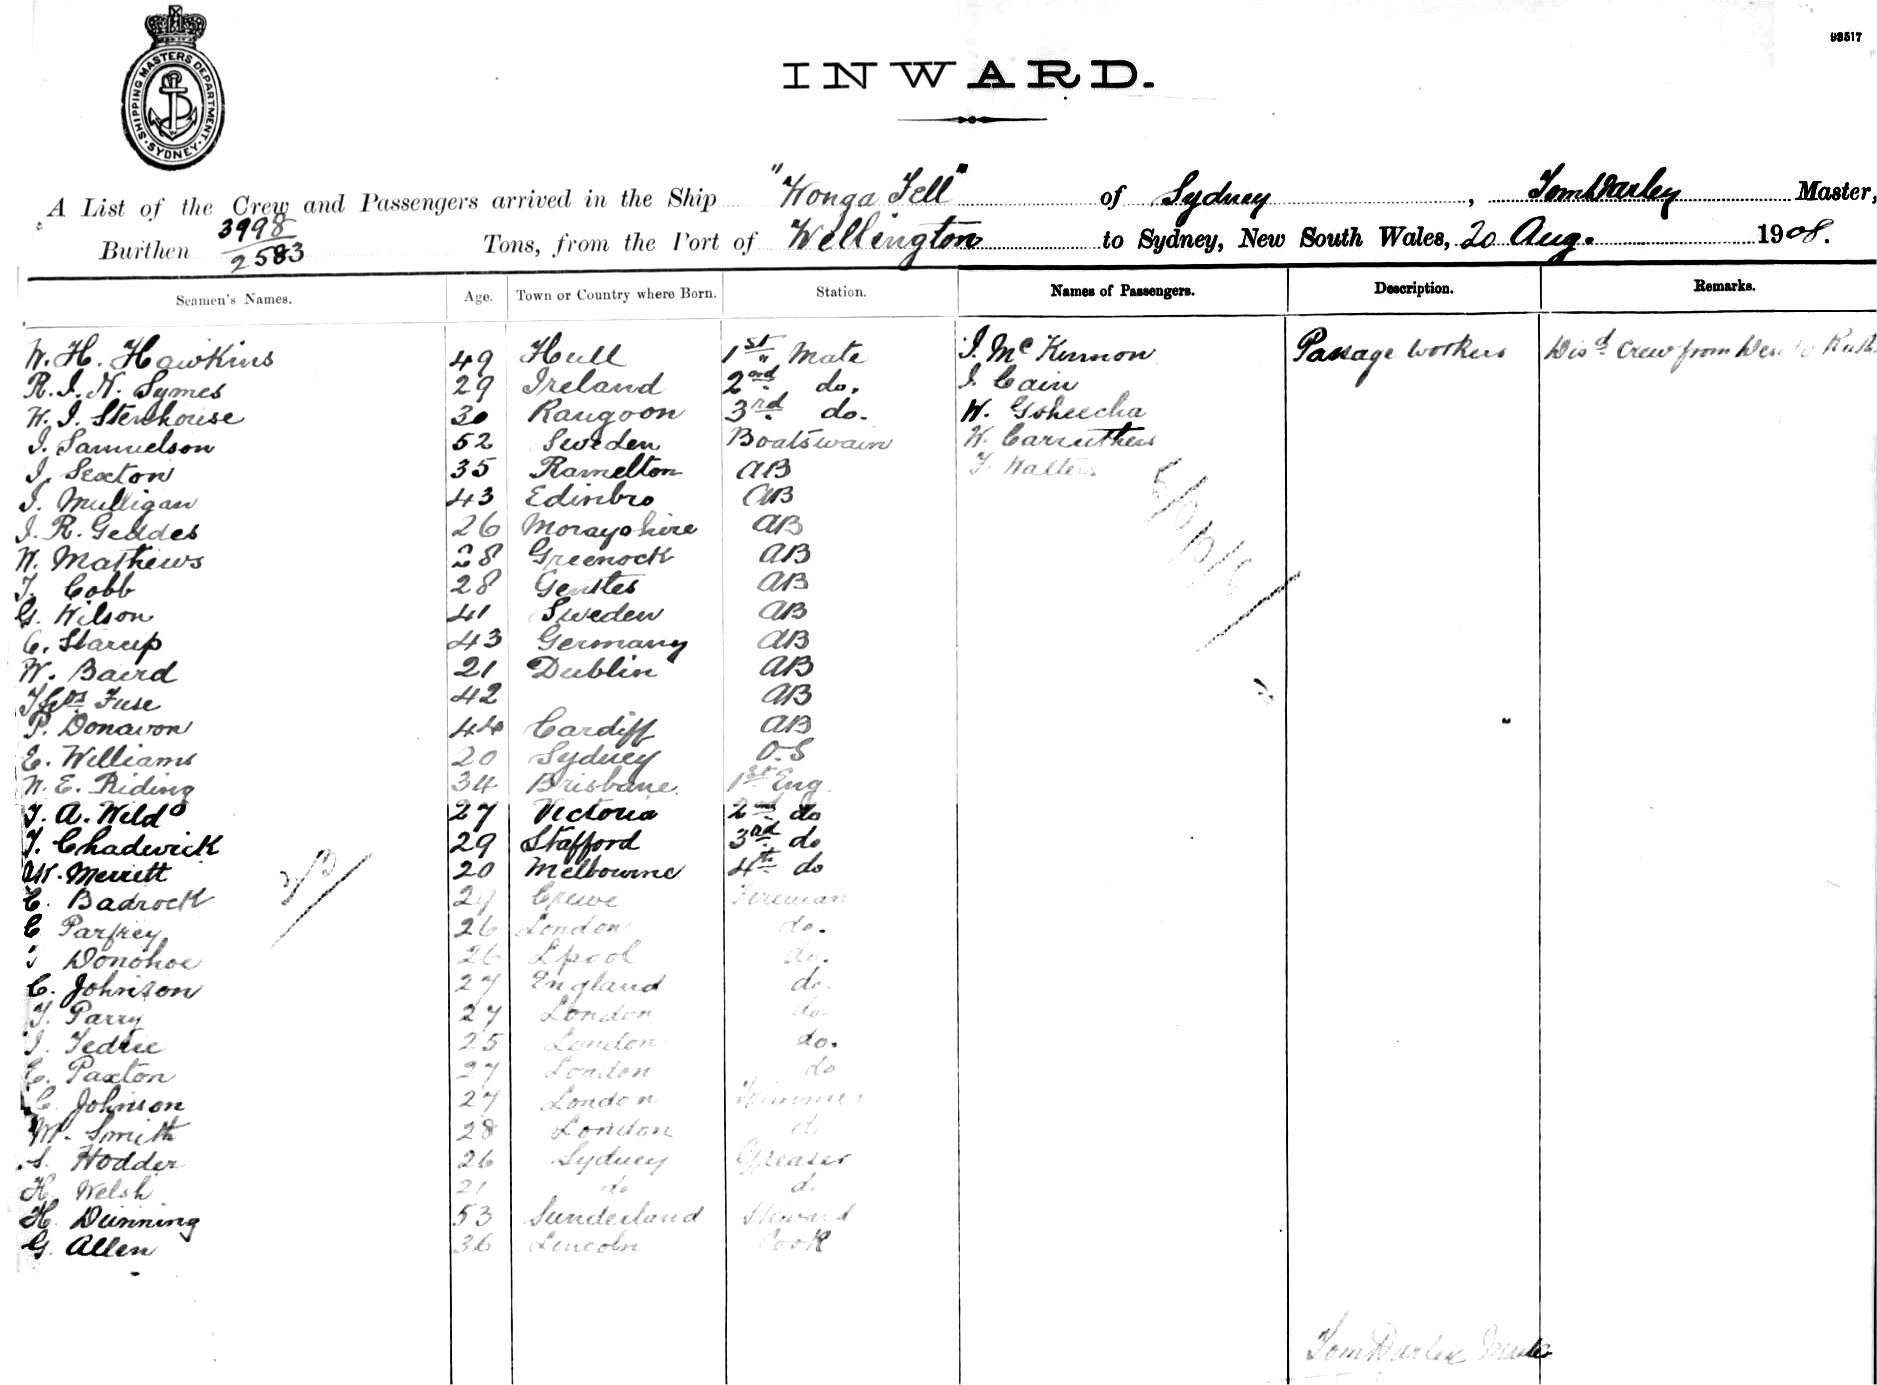 98517
SHIPPING MASTERS DEPARTMENT
SYDNEY
INWARD.
A List of the Crew and Passengers arrived in the Ship "Wonga Fell" of Sydney, Tom Darley Master,
Burthen 3998/2583 Tons, from the Port of Wellington to Sydney, New South Wales, 20 Aug. 1908.
Seamen's Names. Age. Town or Country where Born. Station. Names of Passengers. Description. Remarks.
W. H. Hawkins 49 Hull 1st Mate J. McKinnon Passage workers Disd Crew from
R. J. N. Symes 29 Ireland 2nd do. J. Cain
W. J. Stenhouse 30 Rangoon 3rd do. W.
J. Samuelson 52 Sweden Boatswain W. Carruthers
J. Sexton 35 Ramelton AB F. Walters
J. Mulligan 43 Edinbro AB
J. R. Geddes 26 Morayshire AB
W. Mathews 28 Greenock AB
T. Cobb 28 AB
G. Wilson 41 Sweden AB
C. Starup 43 Germany AB
W. Baird 21 Dublin AB
Fuse 42 AB
P. Donavon 44 Cardiff AB
E. Williams 20 Sydney O.S
W. E. Riding 34 Brisbane. 1st Eng.
T. A. Weld 27 Victoria 2nd do
T. Chadwick 29 Stafford 3rd do
W. Merrett 20 Melbourne 4th do
C. Badrock 27 Crewe Fireman
C Parfrey 26 London do.
Donohoe 26 Lpool do.
C. Johnson 27 England do.
T. Parry 27 London do.
J. Tedree 25 London do.
C. Paxton 27 London do
C. Johnson 27 London Trimmer
M. Smith 28 London d.
S. Hodder 26 Sydney Greaser
H. Welsh 21 do d.
H. Dunning 53 Sunderland Steward
G. Allen 36 Lincoln Cook
Tom Darley